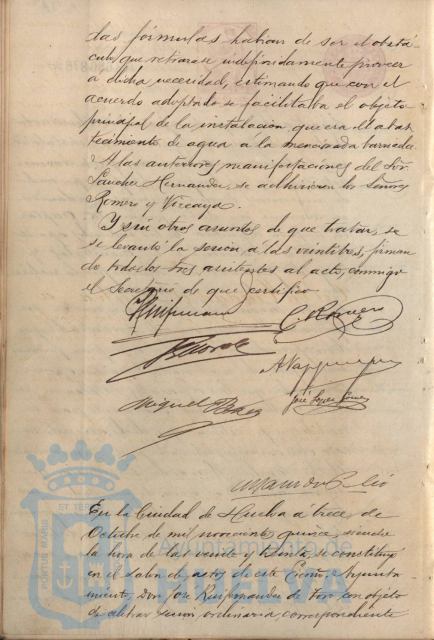 las fórmulas habian de ser el obstá-
culo que retrasase indefinidamente proveer
a dicha necesidad, estimando que con el
acuerdo adoptado se facilitaba el objeto
principal de la instalación que era el abas-
tecimiento de agua a la mencionada barriada.
A las anteriores manifestaciones del Sor.
Sanchez Hernandez, se adhirieron los Señores
Romero y Vizcaya.
Y sin otros asuntos de que tratar, se
se levantó la sesion a las veintitres, firman-
do todos los Sres asistentes al acto, conmigo
el Secretario de que certifico.
C. Romero
Miguel
José Lopez Gomez
En la Ciudad de Huelva á trece de
Octubre de mil novecientos quince, siendo
la hora de las veinte y treinta, se constituyó
en el salon de actos de este Excmo. Ayunta-
miento, Don José de Toro, con objeto
de celebrar sesion ordinaria, correspondiente
PORTUS MARIS
ET TER
Ayuntamiento
HUELVA